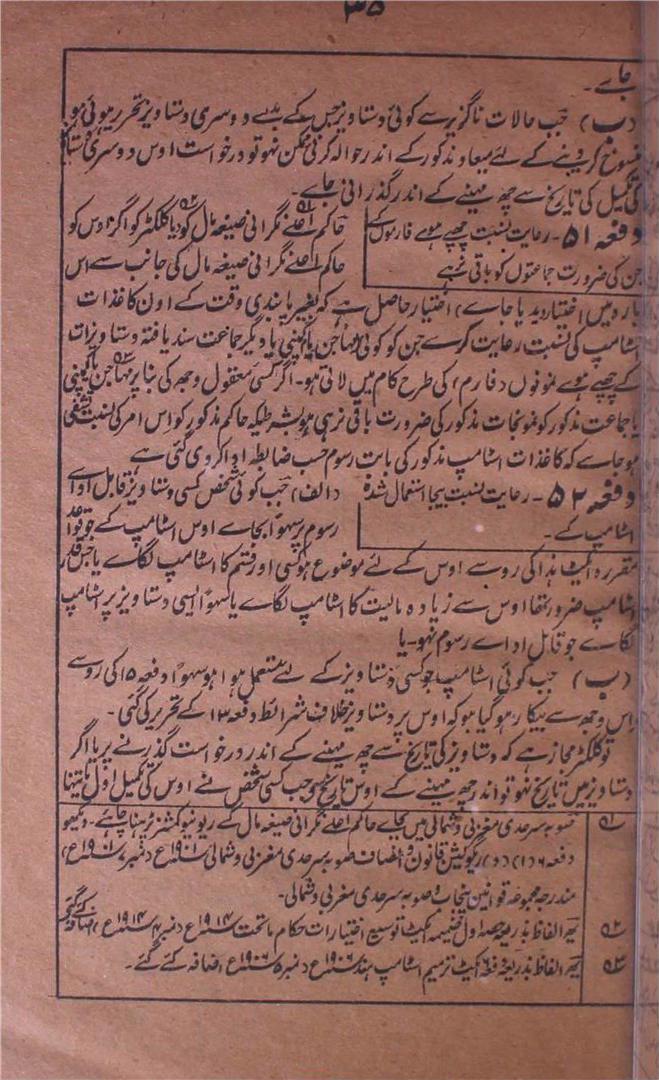 ۳۵
جاے۔
(ب) جب حالات ناگزیر سے کوئی دستاویز جس کے بدلے دوسری دستاویز تحریر ہوئی ہو
منسوخ کر دینے کے لئے میعاد مذکور کے اندر حوالہ کرنی ممکن نہو تو درخواست اوس دوسری دستاویز
کی تکمیل کی تاریخ سے چھ مہینے کے اندر گذرانی جاے۔
دفعہ ۵۱۔ رعایت نسبت چھپے ہوے فارموں کے
جن کی ضرورت جماعتوں کو باقی نرہے
حاکم اعلے نگرانی صیغہ مال کو (یا کلکٹر کو اگر اوس کو
حاکم اعلے نگرانی صیغہ مال کی جانب سے اس
بارہ میں اختیار دیدیا جاے) اختیار حاصل ہے کہ بغیر پابندی وقت کے اون کاغذات
اسٹامپ کی نسبت رعایت کرے جن کو کوئی مہاجن یا کمپنی یا دیگر جماعت سند یافتہ دستاویزات
کے چھپے ہوے نمونوں (فارم) کی طرح کام میں لاتی ہو۔ اگر کسی معقول وجہ کی بنا پر مہاجن یا کمپنی
یا جماعت مذکور کو نمونجات مذکور کی ضرورت باقی نرہی ہو بشرطیکہ حاکم مذکور کو اس امر کی نسبت تشفی
ہو جاے کہ کاغذات اسٹامپ مذکور کی بابت رسوم حسب ضابطہ ادا کر دی گئی ہے
دفعہ ۵۲۔ رعایت نسبت بیجا استعمال شدہ
اسٹامپ کے۔
(الف) جب کوئی شخص کسی دستاویز قابل اداے
رسوم پر سہواً بجاے اوس اسٹامپ کے جو قواعد
مقررہ ایکٹ ہذا کی رو سے اوس کے لئے موضوع ہو کسی اور قسم کا اسٹامپ لگاے یا جس قدر
اسٹامپ ضرور تھا اوس سے زیادہ مالیت کا اسٹامپ لگاے یا سہواً ایسی دستاویز پر اسٹامپ
لگاے جو قابل اداے رسوم نہو۔ یا
(ب) جب کوئی اسٹامپ جو کسی دستاویز کے لئے مستعمل ہوا ہو سہواً دفعہ ۱۵ کی رو سے
اس وجہ سے بیکار ہو گیا ہو کہ اوس پر دستاویز خلاف شرائط دفعہ ۱۳ کے تحریر کی گئی۔
تو کلکٹر مجاز ہے کہ دستاویز کی تاریخ سے چھ مہینے کے اندر درخواست گذرنے پر یا اگر
دستاویز میں تاریخ نہو تو اندر چھ مہینے کے اوس تاریخ سے جب کسی شخص نے اوس کی تکمیل اول یا تنہا
۵۱ صوبہ سرحدی مغربی و شمالی میں بجاے حاکم اعلے نگرانی صیغہ مال کے ریونیو کمشنر پڑھنا چاہئے۔ دیکھو
دفعہ ۶ (۱) (د) ریگولیشن قانون و انصاف صوبہ سرحدی مغربی و شمالی ۱۹۰۱ء (نمبر ۷ ۱۹۰۱ء)
مندرجہ مجموعہ قوانین پنجاب و صوبہ سرحدی مغربی و شمالی۔
۵۲ یہ الفاظ بذریعہ حصہ اول ضمیمہ ایکٹ توسیع اختیارات حکام ماتحت ۱۹۱۴ء (نمبر ۴ ۱۹۱۴ء) اضافہ کئے گئے
۵۳ یہ الفاظ بذریعہ دفعہ ۶ ایکٹ ترمیم اسٹامپ ہند ۱۹۰۶ء (نمبر ۵ ۱۹۰۶ء) اضافہ کئے گئے۔